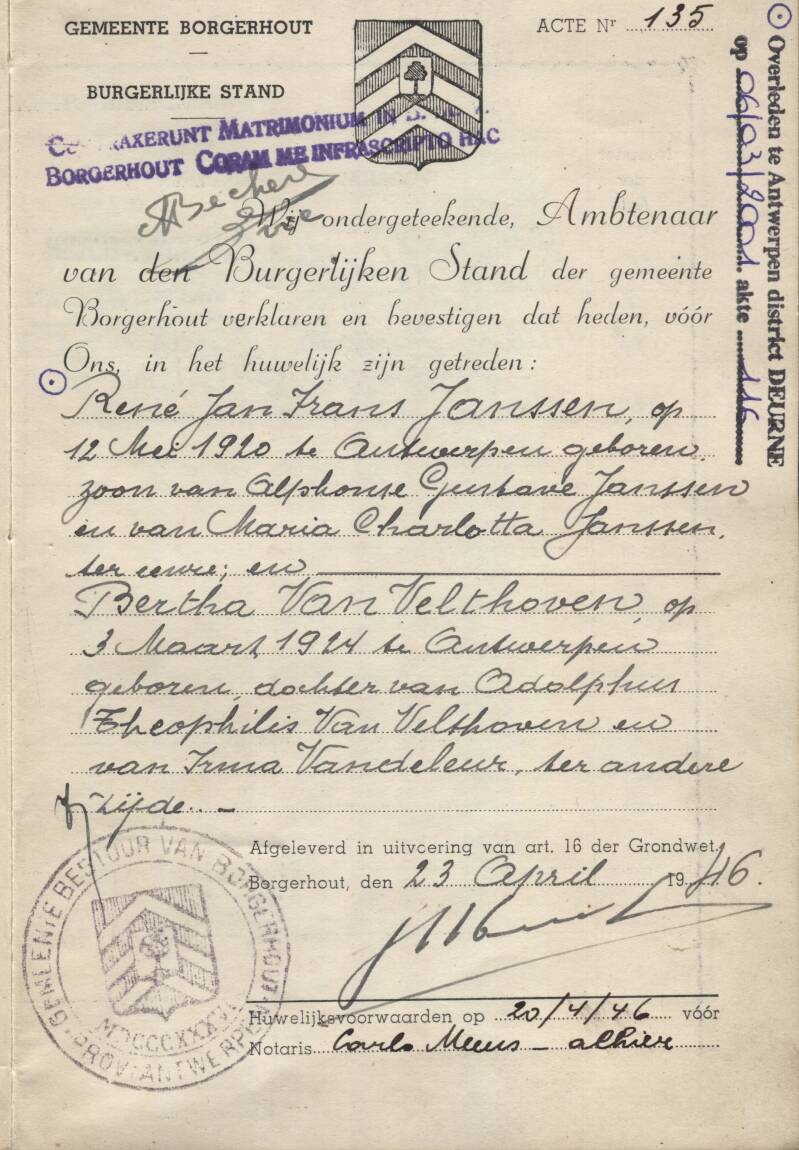 GEMEENTE BORGERHOUT
BURGERLIJKE STAND
ACTE Nr 135
MATRIMONIUM IN
BORGERHOUT CORAM ME INFRASCRIPTO HAC
Wij ondergeteekende, Ambtenaar
van den Burgerlijken Stand der gemeente
Borgerhout verklaren en bevestigen dat heden, vóór
Ons, in het huwelijk zijn getreden:
René Jan Frans Janssen, op
12 Mei 1920 te Antwerpen geboren,
zoon van Alphonse Gustave Janssen
en van Maria Charlotta Janssen,
ter eenre; en
Bertha Van Velthoven, op
3 Maart 1924 te Antwerpen
geboren, dochter van Adolphus
Theophilis Van Velthoven en
van Irma Vandeleur, ter andere
zijde. -
Afgeleverd in uitvoering van art. 16 der Grondwet.
Borgerhout, den 23 April 1946.
Huwelijksvoorwaarden op 20/4/46 vóór
Notaris Carlo Meeus - alhier
GEMEENTE BESTUUR VAN BORGERHOUT
PROV. ANTWERPEN
Overleden te Antwerpen district DEURNE
op 06/03/2001 akte 116